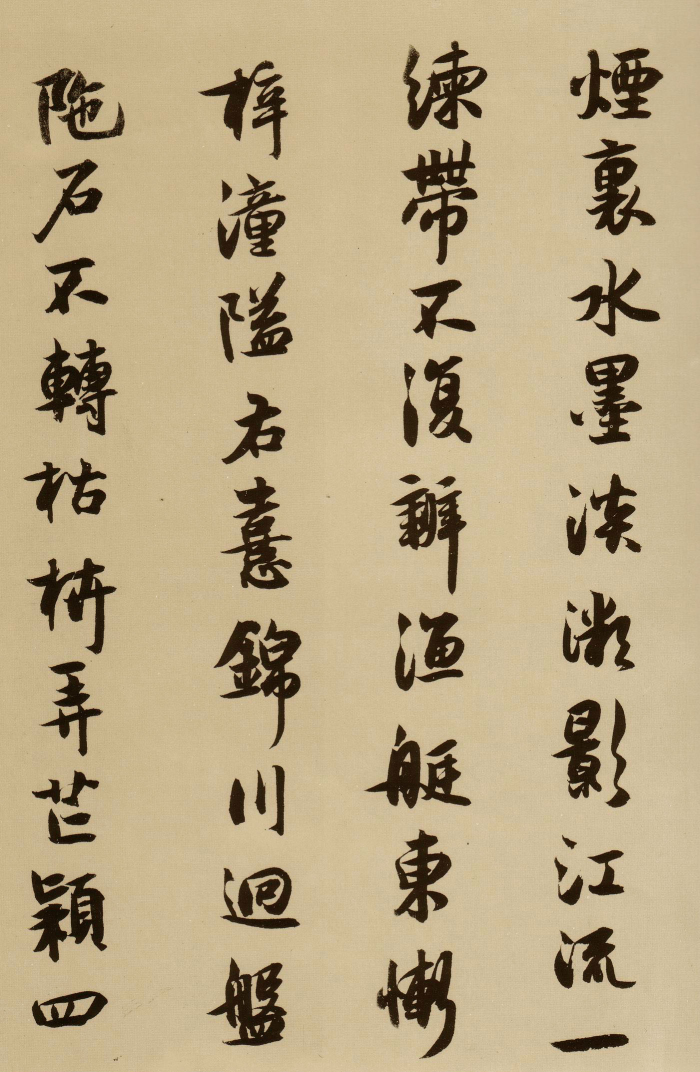 煙裏水墨淡澂影江流一
練帶不復辨漁艇東慚
梓潼隘右憙錦川迴盤
陁石不轉枯栟弄芒穎四